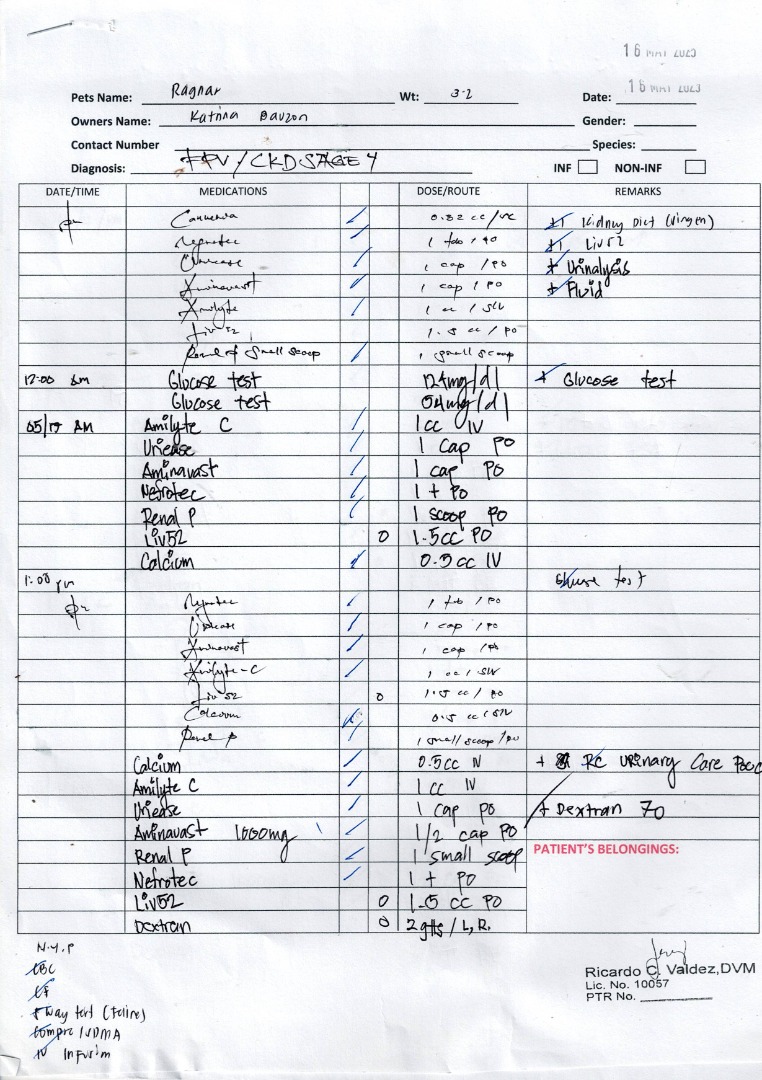 16 MAY 2023
Pets Name: Ragnar Wt: 3.2 Date: 16 MAY 2023
Owners Name: Katrina Bauzon Gender:
Contact Number Species:
Diagnosis: FPV / CKD SAGE 4 INF NON-INF
DATE/TIME MEDICATIONS DOSE/ROUTE REMARKS
0.32 cc / +1 Kidney Diet (Vingen)
Nefrotec 1 tab / PO +1 Liv52
Uriease 1 cap / PO + Urinalysis
Aminavast 1 cap / PO + Fluid
Amilyte 1 cc / SIV
Liv 52 1.5 cc / PO
Renal P small scoop 1 small scoop
12:00 AM Glucose test 124mg/dl + Glucose test
Glucose test 54mg/dl
05/17 AM Amilyte C 1cc IV
Uriease 1 cap PO
Aminavast 1 cap PO
Nefrotec 1 + PO
Renal P 1 scoop PO
Liv52 0 1.5cc PO
Calcium 0.5cc IV
1:00 pm Glucose test
Nefrotec 1 tab / PO
Uriease 1 cap / PO
Aminavast 1 cap / PO
Amilyte-C 1 cc / SIV
Liv 52 0 1.5 cc / PO
Calcium 0.5 cc / SIV
Renal P 1 small scoop / PO
Calcium 0.5cc IV + RC Urinary Care
Amilyte C 1cc IV
Uriease 1 cap PO + Dextran 70
Aminavast 1000mg 1/2 cap PO
Renal P 1 small scoop PATIENT'S BELONGINGS:
Nefrotec 1 + PO
Liv52 0 1.5 cc PO
Dextran 0 2gtts / L, R.
N.Y.P
CBC
CF
way test (feline)
Compre / SDMA
IV Infusion
Ricardo C. Valdez, DVM
Lic. No. 10057
PTR No.